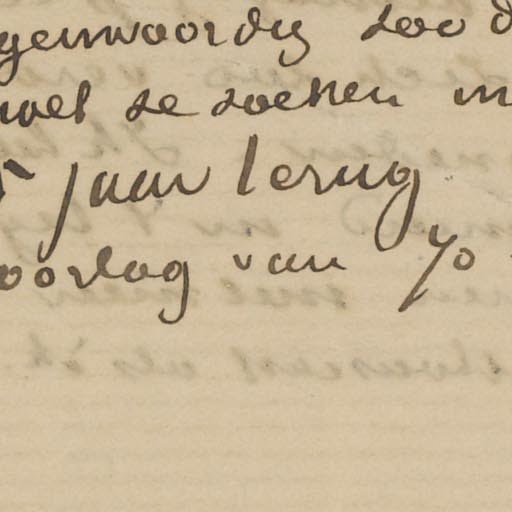 genwoordig zoo d
wel de zoeken m
5 jaar terug
oorlog van 70